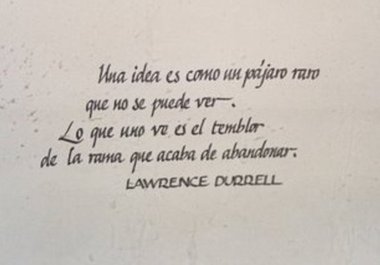 Una idea es como un pájaro raro
que no se puede ver.
Lo que uno ve es el temblor
de la rama que acaba de abandonar.
LAWRENCE DURRELL